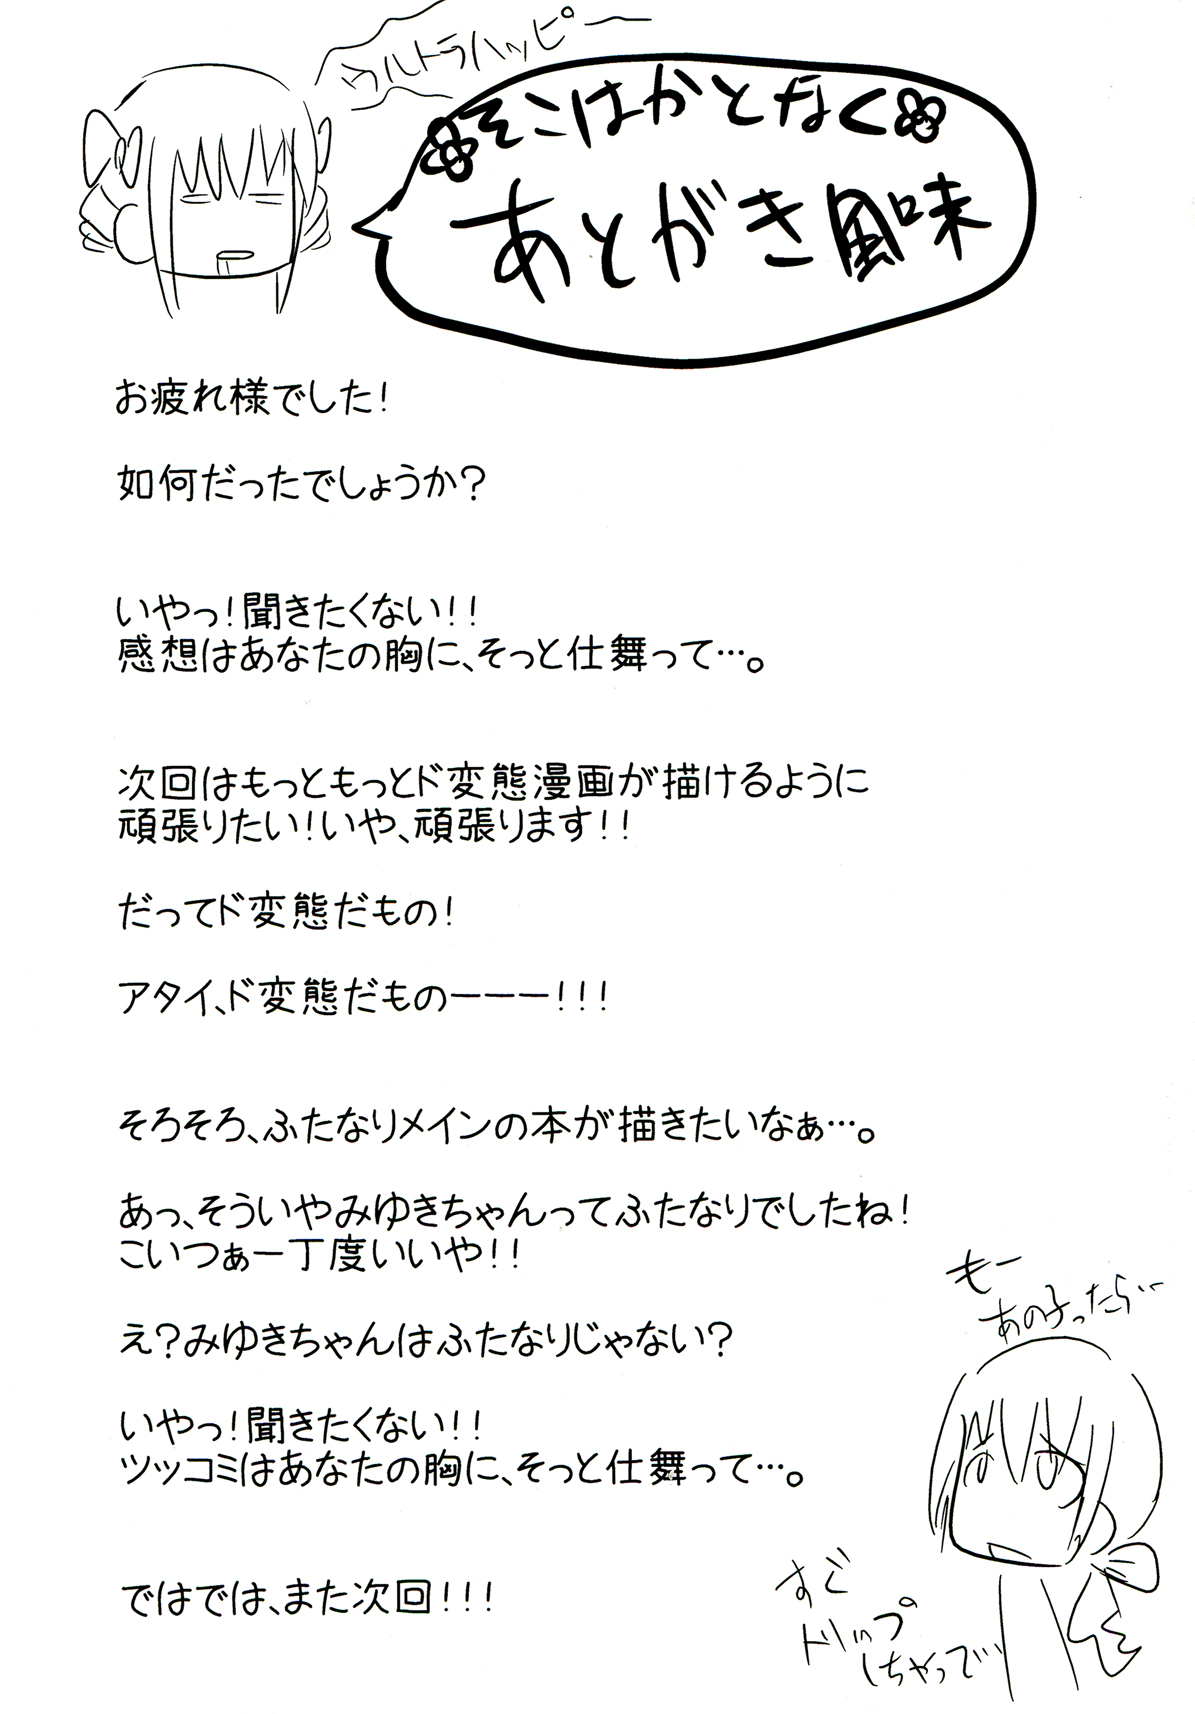 ウルトラハッピー
そこはかとなく
あとがき風味
お疲れ様でした!
如何だったでしょうか?
いやっ!聞きたくない!!
感想はあなたの胸に、そっと仕舞って…。
次回はもっともっとド変態漫画が描けるように
頑張りたい!いや、頑張ります!!
だってド変態だもの!
アタイ、ド変態だものーーー!!!
そろそろ、ふたなりメインの本が描きたいなぁ…。
あっ、そういやみゆきちゃんってふたなりでしたね!
こいつぁー丁度いいや!!
え?みゆきちゃんはふたなりじゃない?
いやっ!聞きたくない!!
ツッコミはあなたの胸に、そっと仕舞って…。
ではでは、また次回!!!
もー
あの子ったら…
すぐ
トリップ
しちゃって…